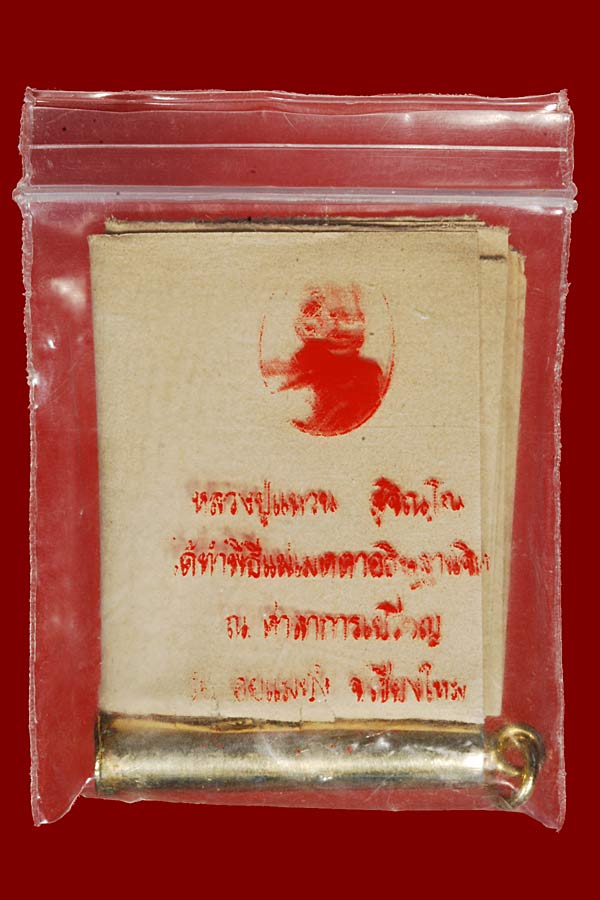 หลวงปู่แหวน สุจิณฺโณ
ได้ทำพิธีแผ่เมตตาอธิษฐานจิต
ณ ศาลาการเปรียญ
ดอยแม่ปั๋ง จ.เชียงใหม่